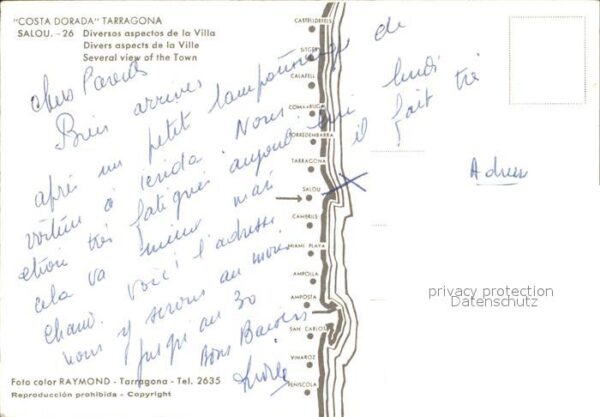 "COSTA DORADA" TARRAGONA
SALOU. - 26 Diversos aspectos de la Villa
Divers aspects de la Ville
Several view of the Town
CASTELLDEFELS
SITGES
CALAFELL
COMARRUGA
TORREDEMBARRA
TARRAGONA
SALOU
CAMBRILS
MIAMI PLAYA
AMPOLLA
AMPOSTA
SAN CARLOS
VINAROZ
PENISCOLA
Chers Parents
Bien arrivés
après un petit tamponnage de
voiture à lerida. Nous
étion très fatigués aujourd'hui lundi
cela va mieux mais il fait très
chaud. Voici l'adresse
nous y serons au moins
jusqu'au 30
Bons Baisers
Adresse
privacy protection
Datenschutz
Foto color RAYMOND - Tarragona - Tel. 2635
Reproducción prohibida - Copyright